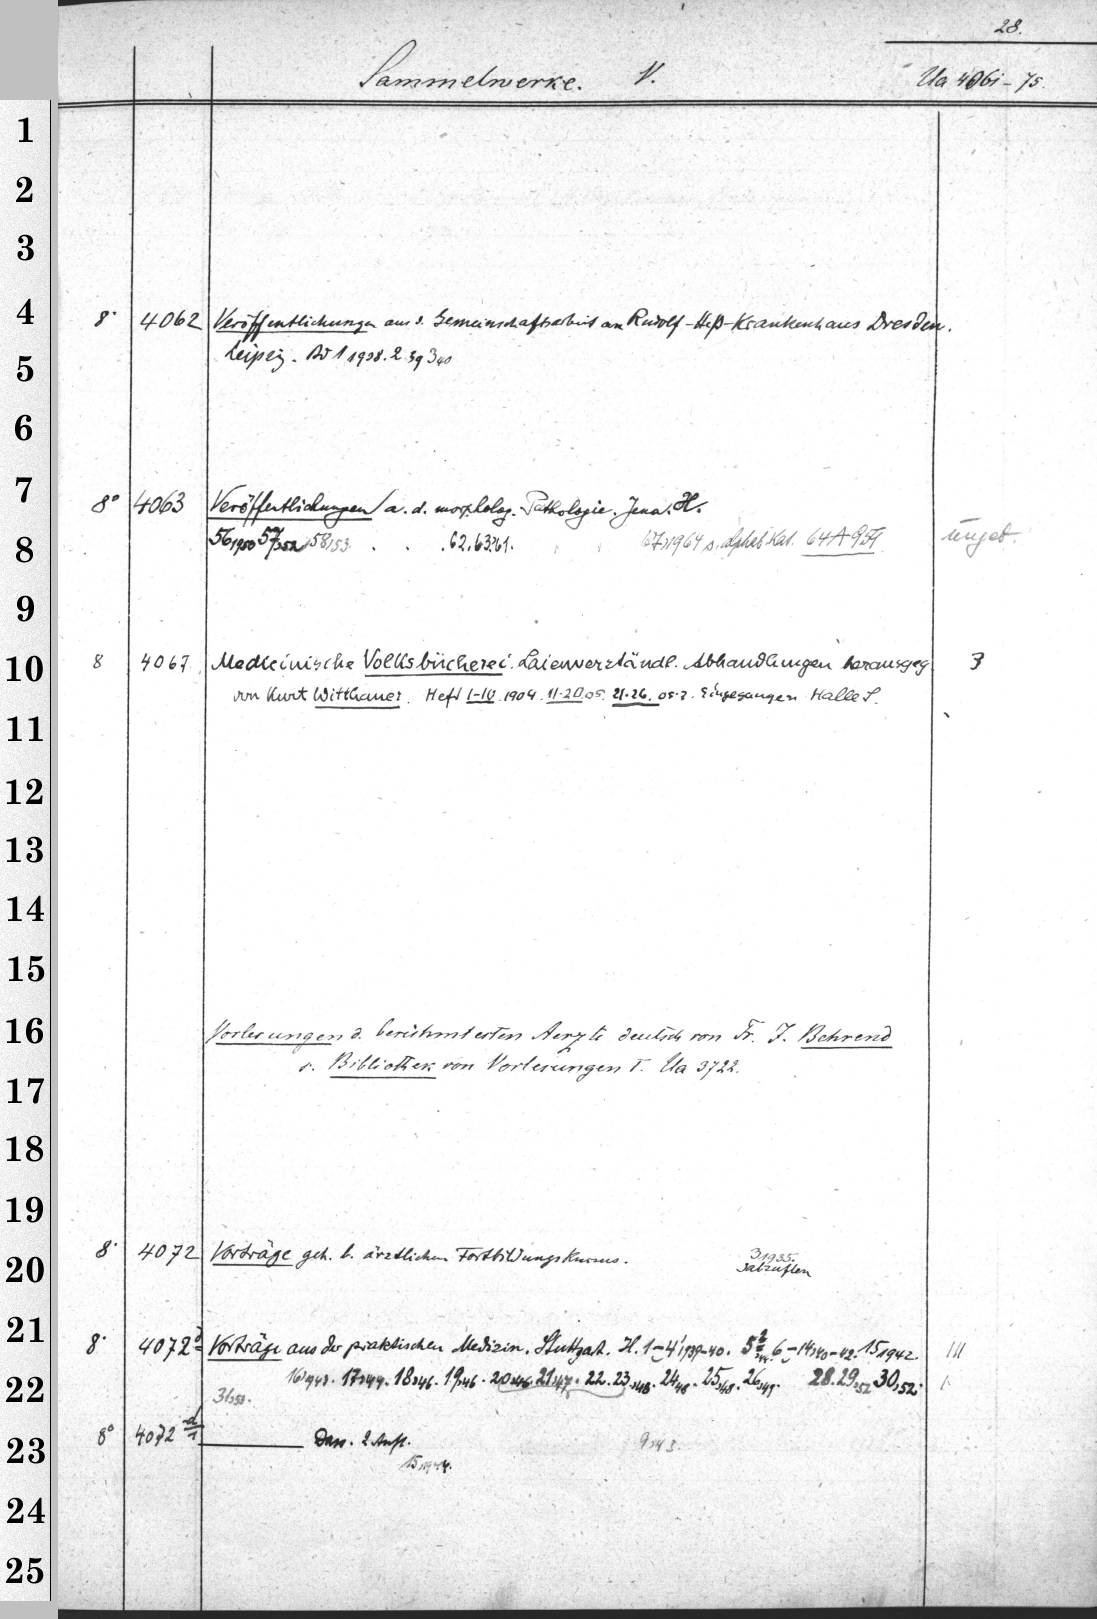 28.
Sammelwerke. V. Ua 4061-75.
8° 4062 Veröffentlichungen aus d. Gemeinschaftsarbeit am Rudolf-Heß-Krankenhaus Dresden.
Leipzig. Bd 1 1938. 2 39 3 40
8° 4063 Veröffentlichungen a. d. morpholog. Pathologie. Jena. H.
56,1950 57,1952 58,53. . . . 62. 63,61. 67,1964 s. alphab Kat. 64 A 951 ungeb.
8 4067 Medizinische Volksbücherei. Laienverständl. Abhandlungen herausgeg. 3
von Kurt Witthauer. Heft 1-10 1904. 11-20 05. 21-26. 05-7. Eingegangen Halle S.
Vorlesungen d. berühmtesten Aerzte deutsch von Fr. J. Behrend
s. Bibliothek von Vorlesungen I. Ua 3722.
8° 4072 Vorträge geh. b. ärztlichen Fortbildungskursus. 3 1935.
8° 4072d Vorträge aus der praktischen Medizin. Stuttgart. H. 1-4,1939-40. 5 6-14,40-42. 15,1942. III
16,1943. 17,44. 18,46. 19,46. 20,46. 21,47. 22. 23,48. 24,48. 25,48. 26,49. 28. 29,52 30,52.
31,53.
8° 4072 d/1 Dass. 2. Aufl. 9,43.
15,1944.